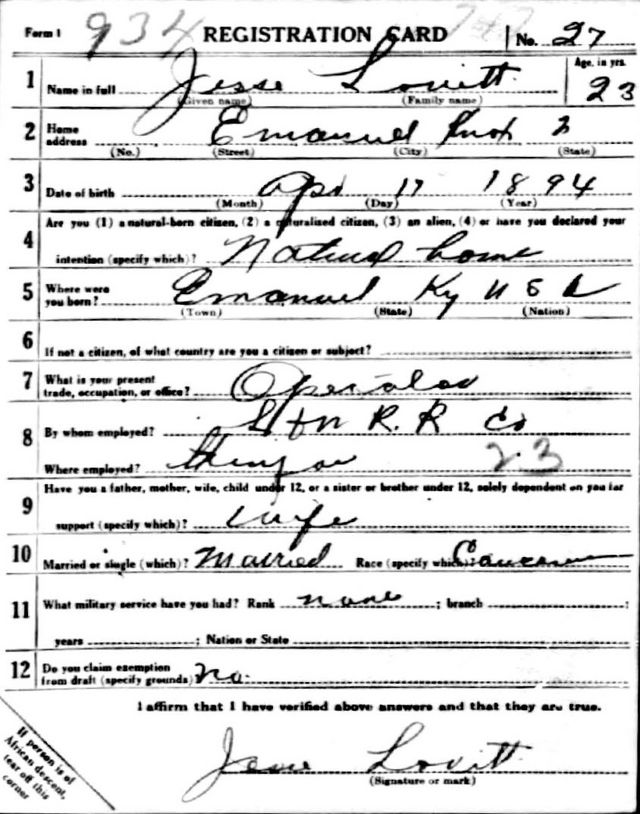 Form 1 934 REGISTRATION CARD No. 27
1 Name in full Jesse Lovitt Age, in yrs. 23
(Given name) (Family name)
2 Home address Emanuel Knox
(No.) (Street) (City) (State)
3 Date of birth Apr 17 1894
(Month) (Day) (Year)
4 Are you (1) a natural-born citizen, (2) a naturalized citizen, (3) an alien, (4) or have you declared your
intention (specify which)? Natural born
5 Where were you born? Emanuel Ky U S A
(Town) (State) (Nation)
6 If not a citizen, of what country are you a citizen or subject?
7 What is your present trade, occupation, or office? Operator
8 By whom employed? L & N R. R Co
Where employed? 23
9 Have you a father, mother, wife, child under 12, or a sister or brother under 12, solely dependent on you for
support (specify which)? Wife
10 Married or single (which)? Married Race (specify which)? Caucasian
11 What military service have you had? Rank none ; branch ;
years ; Nation or State
12 Do you claim exemption from draft (specify grounds) No.
I affirm that I have verified above answers and that they are true.
If person is of
African descent,
tear off this
corner
Jesse Lovitt
(Signature or mark)